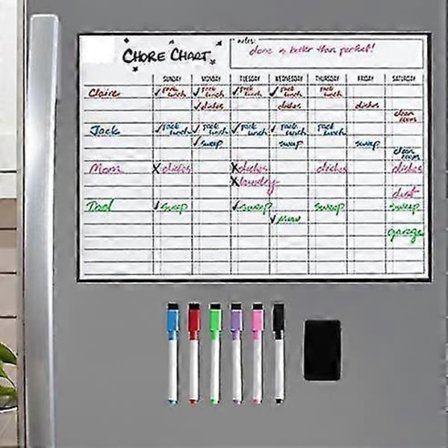 CHORE CHART
notes:
done is better than perfect!
SUNDAY MONDAY TUESDAY WEDNESDAY THURSDAY FRIDAY SATURDAY
Claire ✓ pack lunch ✓ pack lunch ✓ pack lunch ✓ pack lunch pack lunch
✓ dishes dishes dishes
clean room
Jack ✓ pack lunch ✓ pack lunch ✓ pack lunch ✓ pack lunch pack lunch
✓ sweep sweep sweep
clean room
Mom X dishes X dishes dishes dishes
X laundry
dust
Dad ✓ sweep ✓ sweep sweep sweep
✓ mow
garage